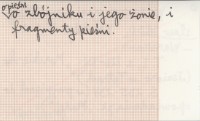 o pieśni
o zbójniku i jego żonie, i
fragmenty pieśni.